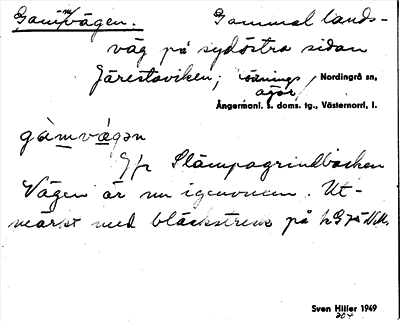 Gammvägen. Gammal lands-
väg på sydöstra sidan
Järestaviken; Nordingrå sn,
ägor
Ångermanl. s. doms. tg., Västernorrl. l.
gàmvägən
Jfr Slämpagrindbacken
Vägen är nu igenvuxen. Ut-
märkt med bläckstreck på
Sven Hiller 1949
204